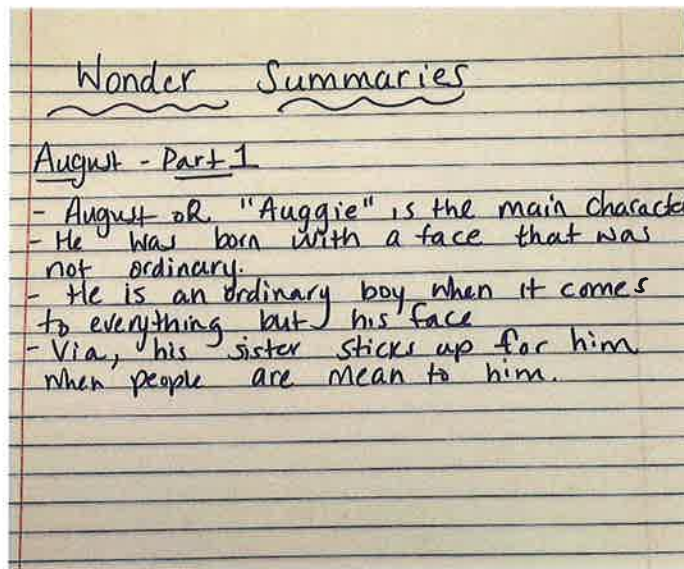 Wonder Summaries
August - Part 1
- August oR "Auggie" is the main characte
- He was born with a face that was
not ordinary.
- He is an ordinary boy when it comes
to everything but his face
- Via, his sister sticks up for him
when people are mean to him.